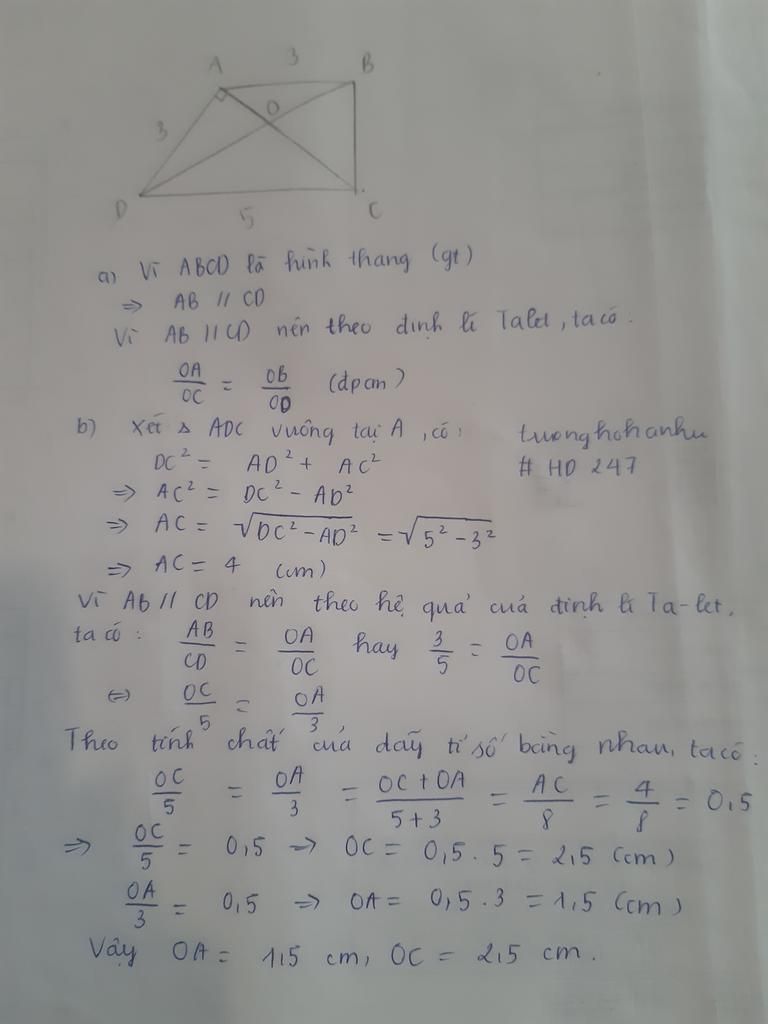 A 3 B
O
3
D 5 C
a) Vì ABCD là hình thang (gt)
=> AB // CD
Vì AB // CD nên theo định lí Talet, ta có:
OA/OC = OB/OD (đpcm)
b) Xét △ ADC vuông tại A, có:
tuonghohanhu
# HD 247
DC² = AD² + AC²
=> AC² = DC² - AD²
=> AC = √(DC² - AD²) = √(5² - 3²)
=> AC = 4 (cm)
Vì AB // CD nên theo hệ quả của định lí Ta-let,
ta có: AB/CD = OA/OC hay 3/5 = OA/OC
<=> OC/5 = OA/3
Theo tính chất của dãy tỉ số bằng nhau, ta có:
OC/5 = OA/3 = (OC + OA)/(5 + 3) = AC/8 = 4/8 = 0,5
=> OC/5 = 0,5 => OC = 0,5 . 5 = 2,5 (cm)
OA/3 = 0,5 => OA = 0,5 . 3 = 1,5 (cm)
Vậy OA = 1,5 cm, OC = 2,5 cm.